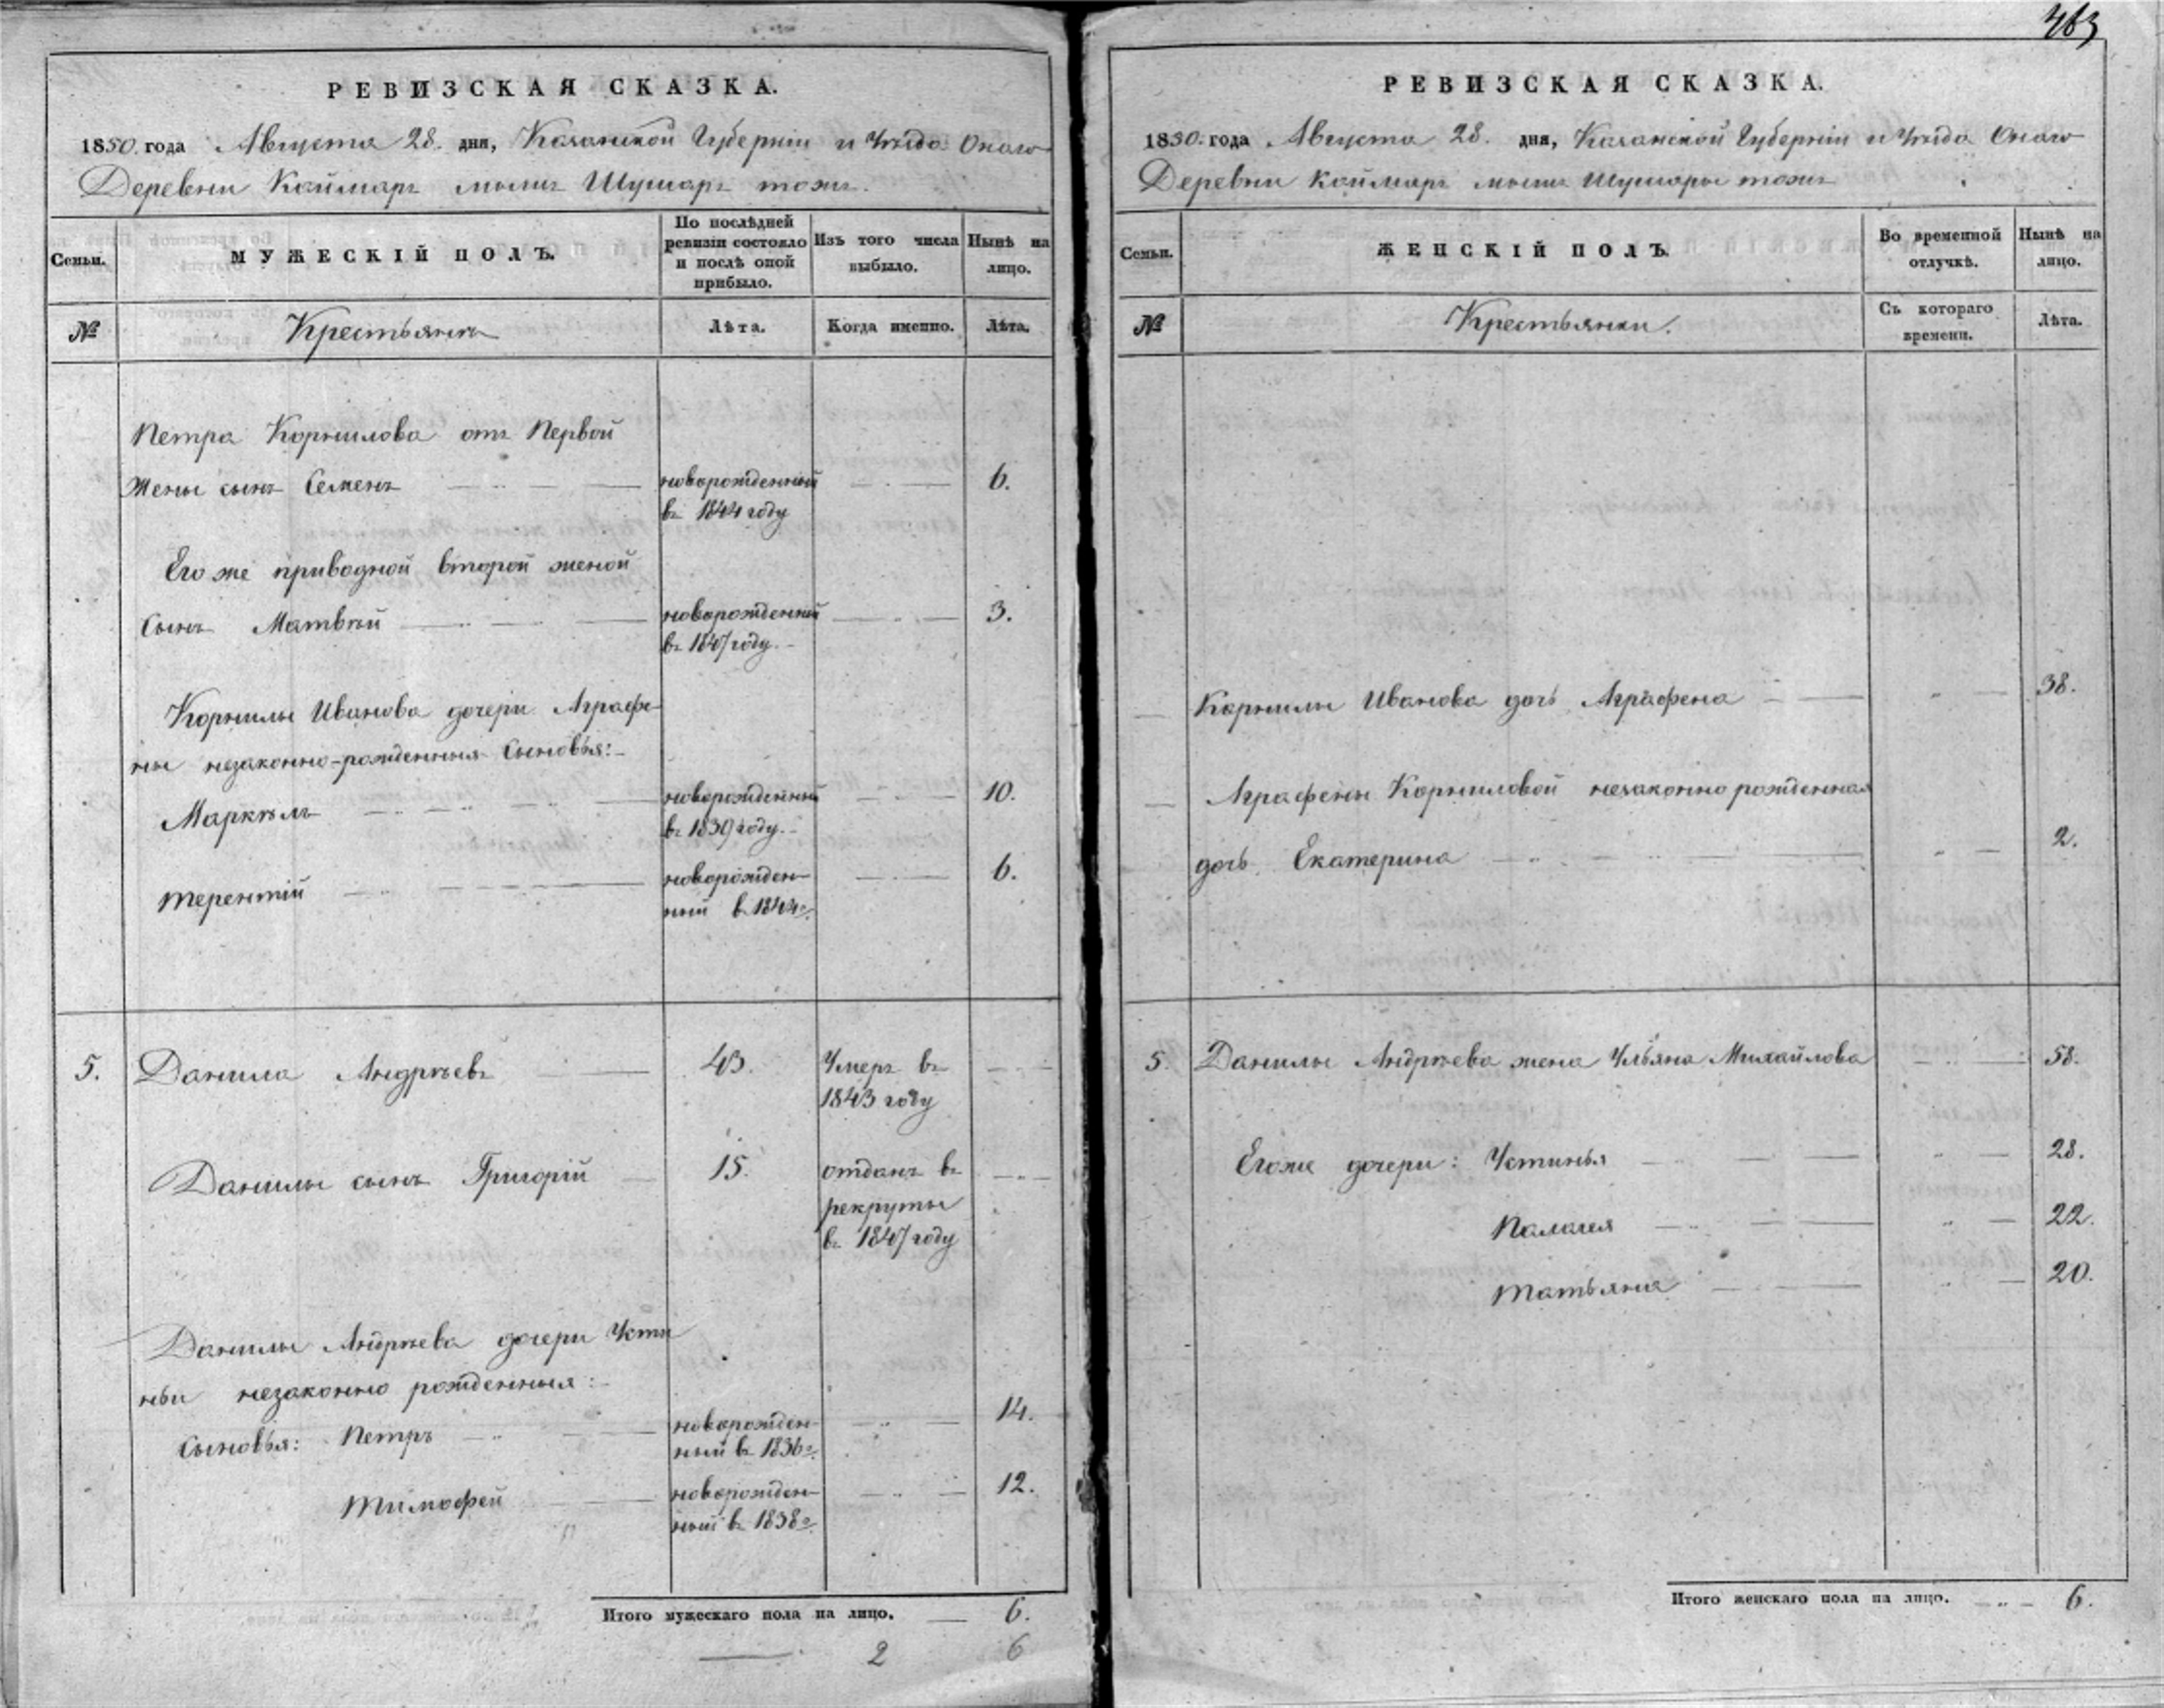 463
РЕВИЗСКАЯ СКАЗКА.
1850. года Августа 28. дня, Казанской Губернiи и Уѣзда Онаго
Деревни Каймаръ Шушаръ тожъ.
Семьи. МУЖЕСКIЙ ПОЛЪ. По послѣдней ревизiи состояло и послѣ оной прибыло. Изъ того числа выбыло. Нынѣ на лицо.
№ Крестьянъ Лѣта. Когда именно. Лѣта.
Петра Корнилова отъ Первой
Жены сынъ Семенъ новорожденный 6.
въ 1844 году
Его же приводной второй женой
Сынъ Матвѣй новорожденный 3.
въ 1847 году.
Корнилы Иванова дочери Аграфе
ны незаконно-рожденныя Сыновья:
Маркелъ новорожденный 10.
въ 1839 году.
Терентiй новорожден 6.
ный в 1844г.
5. Данила Андрѣевъ 43. Умеръ въ
1843 году
Данилы сынъ Григорiй 15. отданъ въ
рекруты
въ 1847 году
Данилы Андрѣева дочери Усти
ньи незаконно рожденныя:
Сыновья: Петръ новорожден 14.
ный въ 1836г.
Тимофей новорожден 12.
ный въ 1838г.
Итого мужескаго пола на лицо. 6.
2 6
РЕВИЗСКАЯ СКАЗКА.
1850. года Августа 28. дня, Казанской Губернiи и Уѣзда Онаго
Деревни Каймаръ Шушары тожъ
Семьи. ЖЕНСКIЙ ПОЛЪ. Во временной отлучкѣ. Нынѣ на лицо.
№ Крестьянки. Съ котораго времени. Лѣта.
Корнилы Иванова дочь Аграфена 38.
Аграфены Корниловой незаконно рожденная
дочь Екатерина 2.
5. Данилы Андрѣева жена Ульяна Михайлова 58.
Егоже дочери: Устинья 28.
Палагея 22.
Татьяна 20.
Итого женскаго пола на лицо. 6.